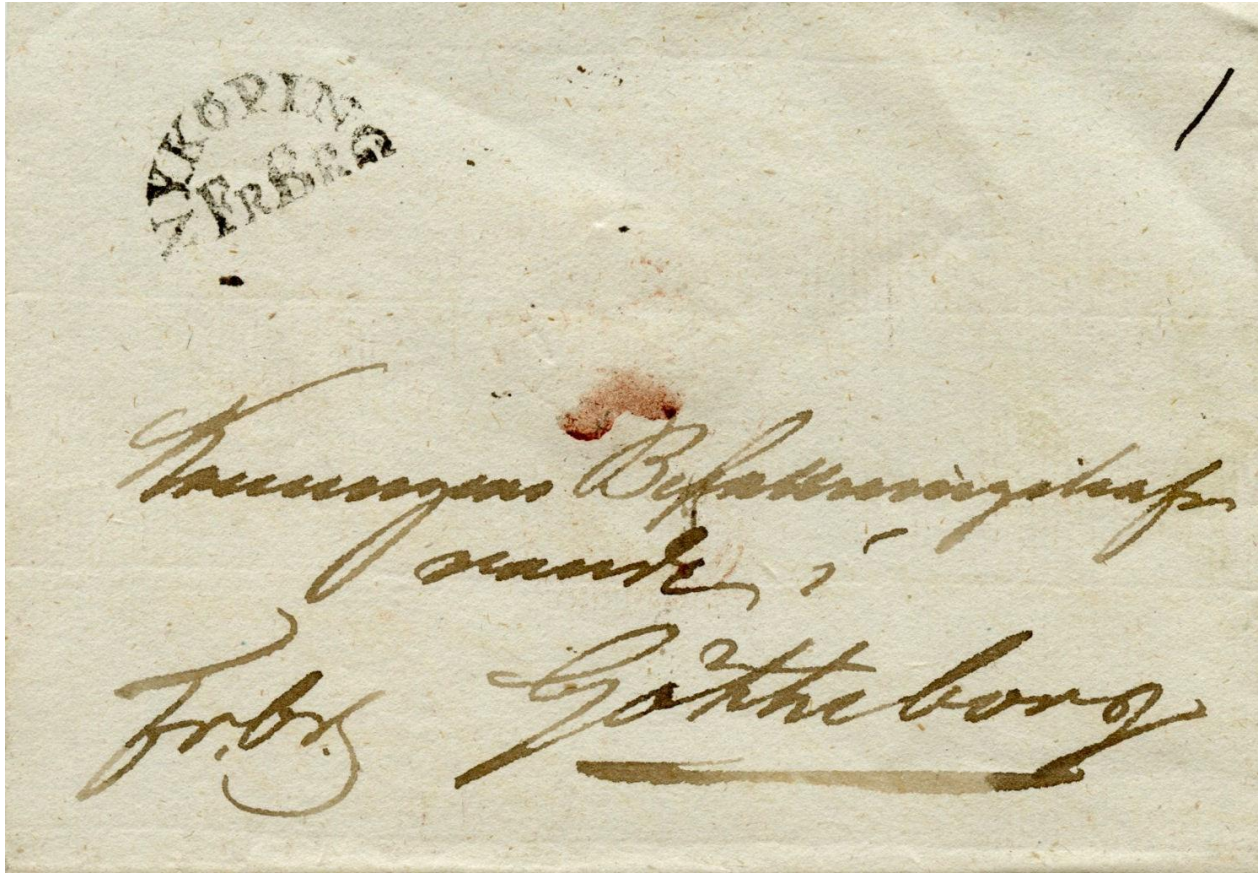 NYKÖPING
FRBR
/
Konungens Befallningshaf
vande i
Götheborg
Fr.br.